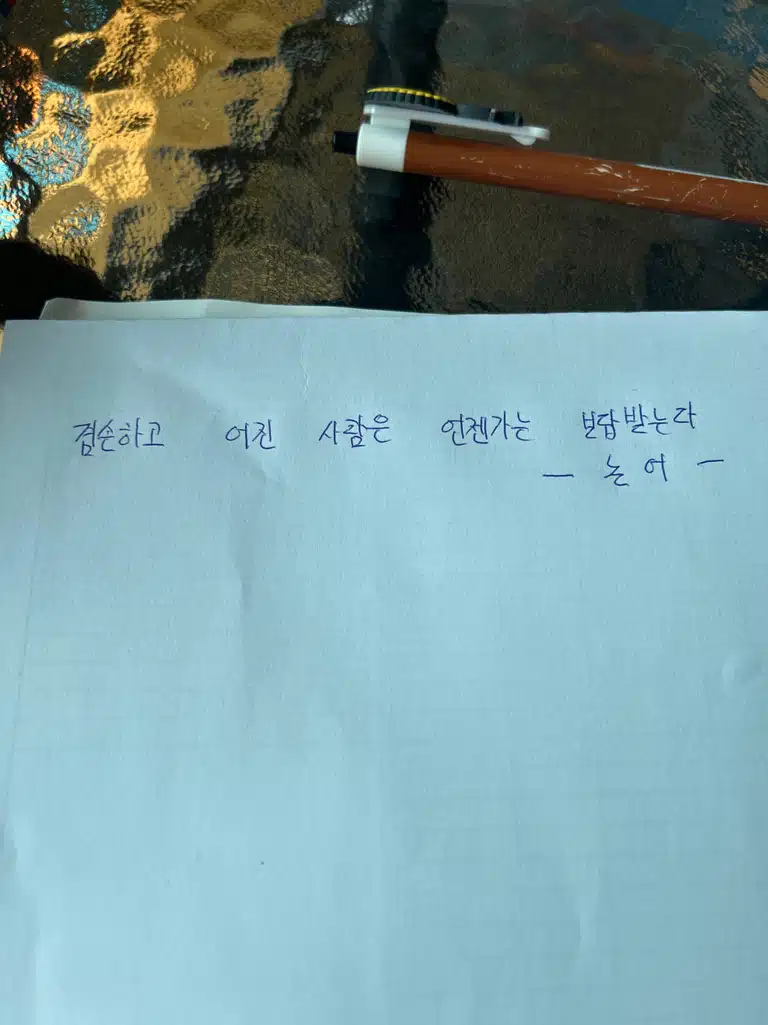 겸손하고 어진 사람은 언젠가는 보답받는다
- 논어 -